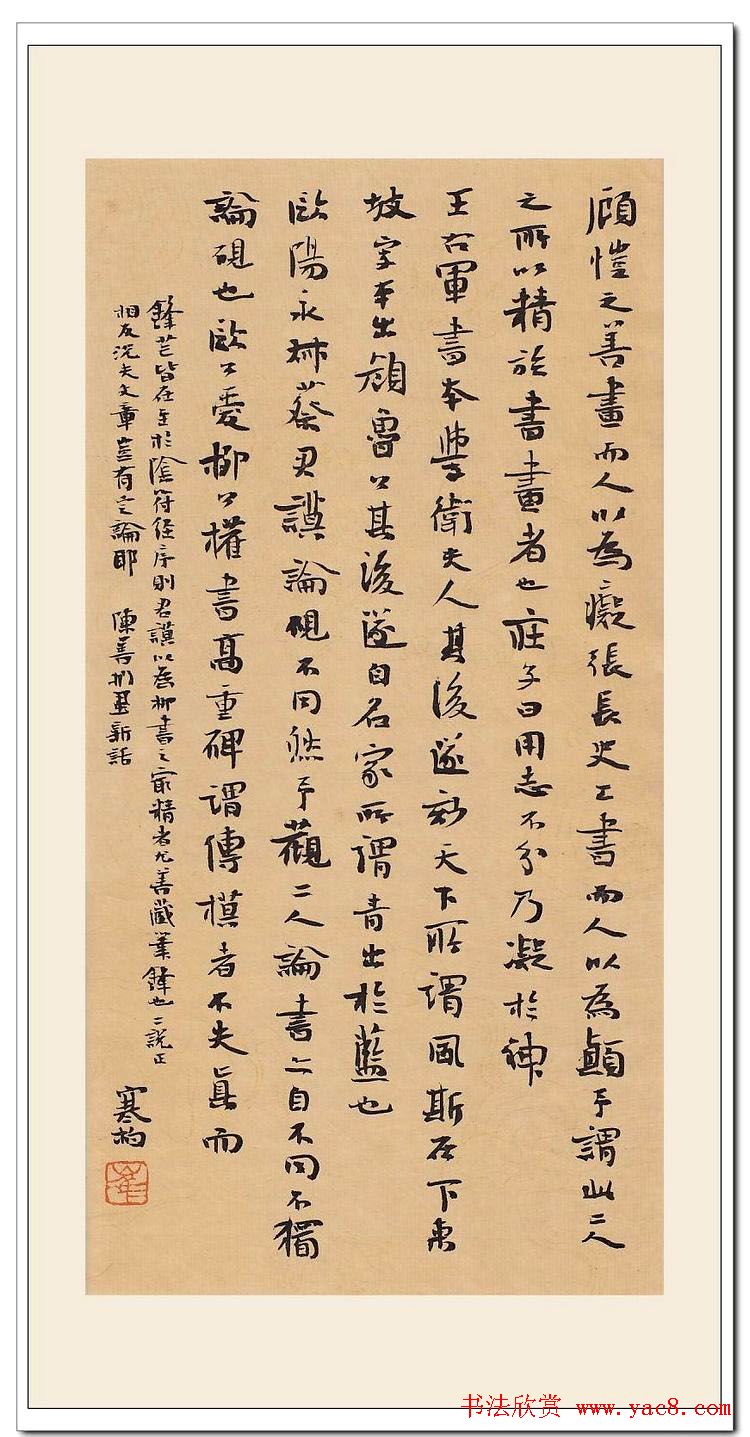 顧愷之善畫而人以為癡張長史工書而人以為顛予謂此二人
之所以精於書畫者也莊子曰用志不分乃凝於神
王右軍書本學衛夫人其後遂妙天下所謂風斯在下東
坡字本出顏魯公其後遂自名家所謂青出於藍也
歐陽永叔蔡君謨論硯不同然予觀二人論書亦自不同不獨
論硯也歐公愛柳公權書高重碑謂傳模者不失真而
鋒芒皆在至於陰符經序則君謨以為柳書之最精者尤善藏筆鋒也二說正
相反況夫文章豈有定論耶 陳善捫虱新話
寒柏
书法欣赏 www.yac8.com